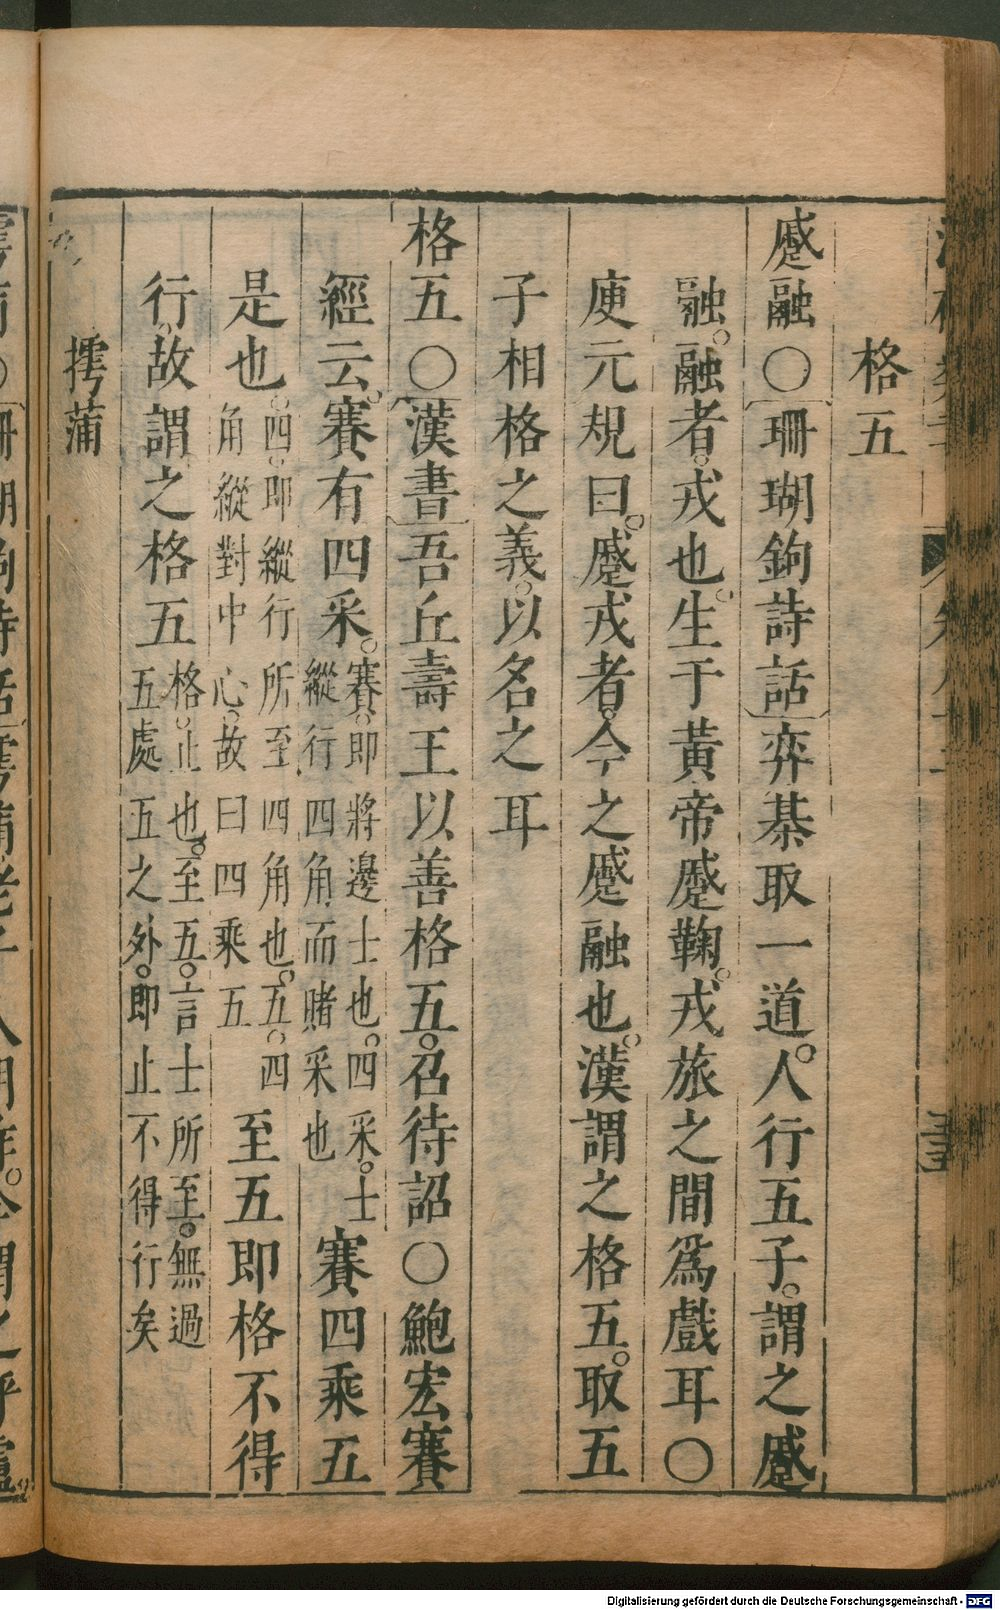 格五
蹙融〇珊瑚鉤詩話弈棊取一道。人行五子。謂之蹙
融。融者。戎也。生于黃帝蹙鞠。戎旅之間爲戲耳〇
庾元規曰。蹙戎者。今之蹙融也。漢謂之格五。取五
子相格之義。以名之耳
格五〇漢書吾丘壽王以善格五。召待詔〇鮑宏賽
經云。賽有四采。賽。即將邊士也。四采。士縱行四角而賭采也賽四乘五
是也。四。即縱行所至四角也。五。四角縱對中心。故曰四乘五至五即格不得
行。故謂之格五格。止也。至五。言士所至。無過五處五之外。即止不得行矣
摴蒲
Digitalisierung gefördert durch die Deutsche Forschungsgemeinschaft - DFG